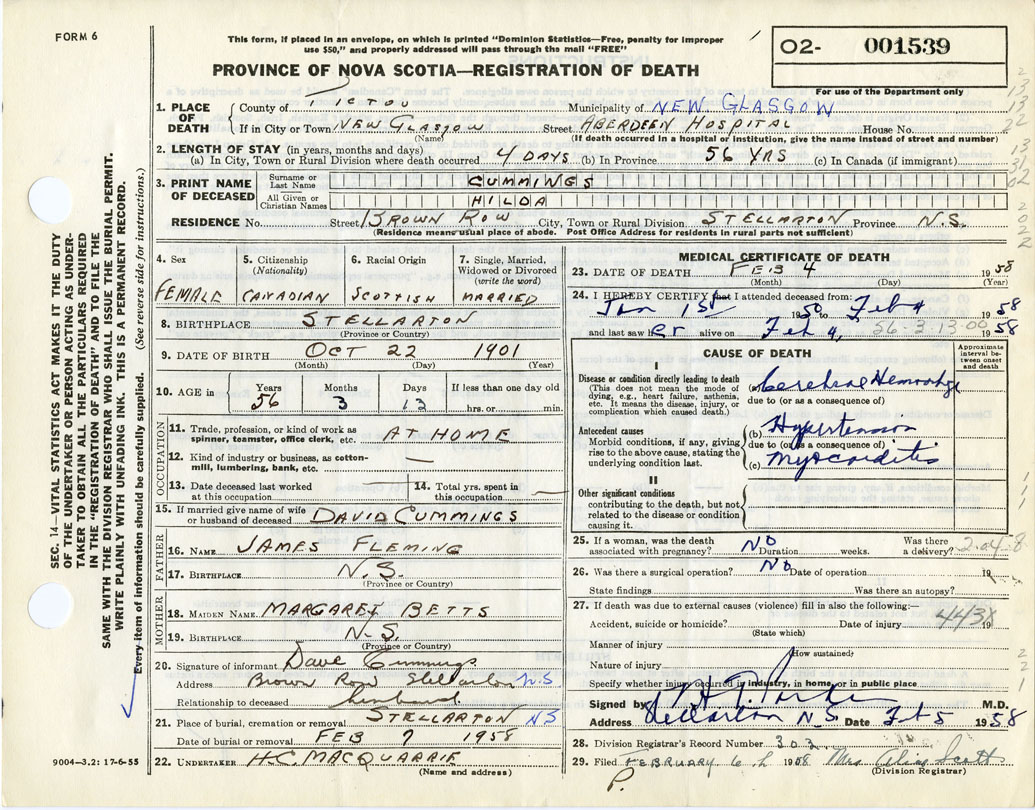 FORM 6
This form, if placed in an envelope, on which is printed "Dominion Statistics—Free, penalty for improper
use $50," and properly addressed will pass through the mail "FREE"
02- 001539
For use of the Department only
PROVINCE OF NOVA SCOTIA—REGISTRATION OF DEATH
SEC. 14—VITAL STATISTICS ACT MAKES IT THE DUTY
OF THE UNDERTAKER OR PERSON ACTING AS UNDER-
TAKER TO OBTAIN ALL THE PARTICULARS REQUIRED
IN THE "REGISTRATION OF DEATH" AND TO FILE THE
SAME WITH THE DIVISION REGISTRAR WHO SHALL ISSUE THE BURIAL PERMIT.
WRITE PLAINLY WITH UNFADING INK. THIS IS A PERMANENT RECORD.
Every item of information should be carefully supplied. (See reverse side for instructions.)
1. PLACE OF DEATH County of PICTOU Municipality of NEW GLASGOW
If in City or Town NEW GLASGOW Street ABERDEEN HOSPITAL House No.
(Name) (If death occurred in a hospital or institution, give the name instead of street and number)
2. LENGTH OF STAY (in years, months and days)
(a) In City, Town or Rural Division where death occurred 4 DAYS (b) In Province 56 YRS (c) In Canada (if immigrant)
3. PRINT NAME OF DECEASED Surname or Last Name CUMMINGS
All Given or Christian Names HILDA
RESIDENCE No. Street BROWN ROW City, Town or Rural Division STELLARTON Province N.S.
(Residence means usual place of abode. Post Office Address for residents in rural parts not sufficient)
4. Sex FEMALE
5. Citizenship (Nationality) CANADIAN
6. Racial Origin SCOTTISH
7. Single, Married, Widowed or Divorced (write the word) MARRIED
8. BIRTHPLACE STELLARTON
(Province or Country)
9. DATE OF BIRTH OCT 22 1901
(Month) (Day) (Year)
10. AGE in Years 56 Months 3 Days 13 If less than one day old
hrs. or min.
OCCUPATION
11. Trade, profession, or kind of work as
spinner, teamster, office clerk, etc. AT HOME
12. Kind of industry or business, as cotton-
mill, lumbering, bank, etc. —
13. Date deceased last worked
at this occupation
14. Total yrs. spent in
this occupation —
15. If married give name of wife
or husband of deceased DAVID CUMMINGS
FATHER
16. NAME JAMES FLEMING
17. BIRTHPLACE N.S.
(Province or Country)
MOTHER
18. MAIDEN NAME MARGARET BETTS
19. BIRTHPLACE N.S.
(Province or Country)
20. Signature of informant Dave Cummings
Address Brown Row Stellarton N.S
Relationship to deceased husband
21. Place of burial, cremation or removal STELLARTON NS
Date of burial or removal FEB 7 1958
22. UNDERTAKER H.C. MACQUARRIE
(Name and address)
9004—3.2: 17-6-55
MEDICAL CERTIFICATE OF DEATH
23. DATE OF DEATH FEB 4 1958
(Month) (Day) (Year)
24. I HEREBY CERTIFY that I attended deceased from:
Jan 1st 1950 to Feb 4 1958
and last saw er alive on Feb 4, 1958
56-3-13-00
CAUSE OF DEATH
Approximate interval between onset and death
I
Disease or condition directly leading to death
(This does not mean the mode of
dying, e.g., heart failure, asthenia,
etc. It means the disease, injury, or
complication which caused death.)
(a) Cerebral Hemorrhage
due to (or as a consequence of)
Antecedent causes
Morbid conditions, if any, giving
rise to the above cause, stating the
underlying condition last.
(b) Hypertension
due to (or as a consequence of)
(c) Myocarditis
II
Other significant conditions
contributing to the death, but not
related to the disease or condition
causing it.
25. If a woman, was the death
associated with pregnancy? No Duration weeks. Was there a delivery?
26. Was there a surgical operation? No Date of operation 19
State findings Was there an autopsy?
27. If death was due to external causes (violence) fill in also the following:—
Accident, suicide or homicide? Date of injury 19
443X
(State which)
Manner of injury
(How sustained)
Nature of injury
Specify whether injury occurred in industry, in home, or in public place
Signed by M.D.
Address Stellarton N.S Date Feb 5 1958
28. Division Registrar's Record Number 302
29. Filed FEBRUARY 6 1958 Mrs Scott
(Division Registrar)
P.